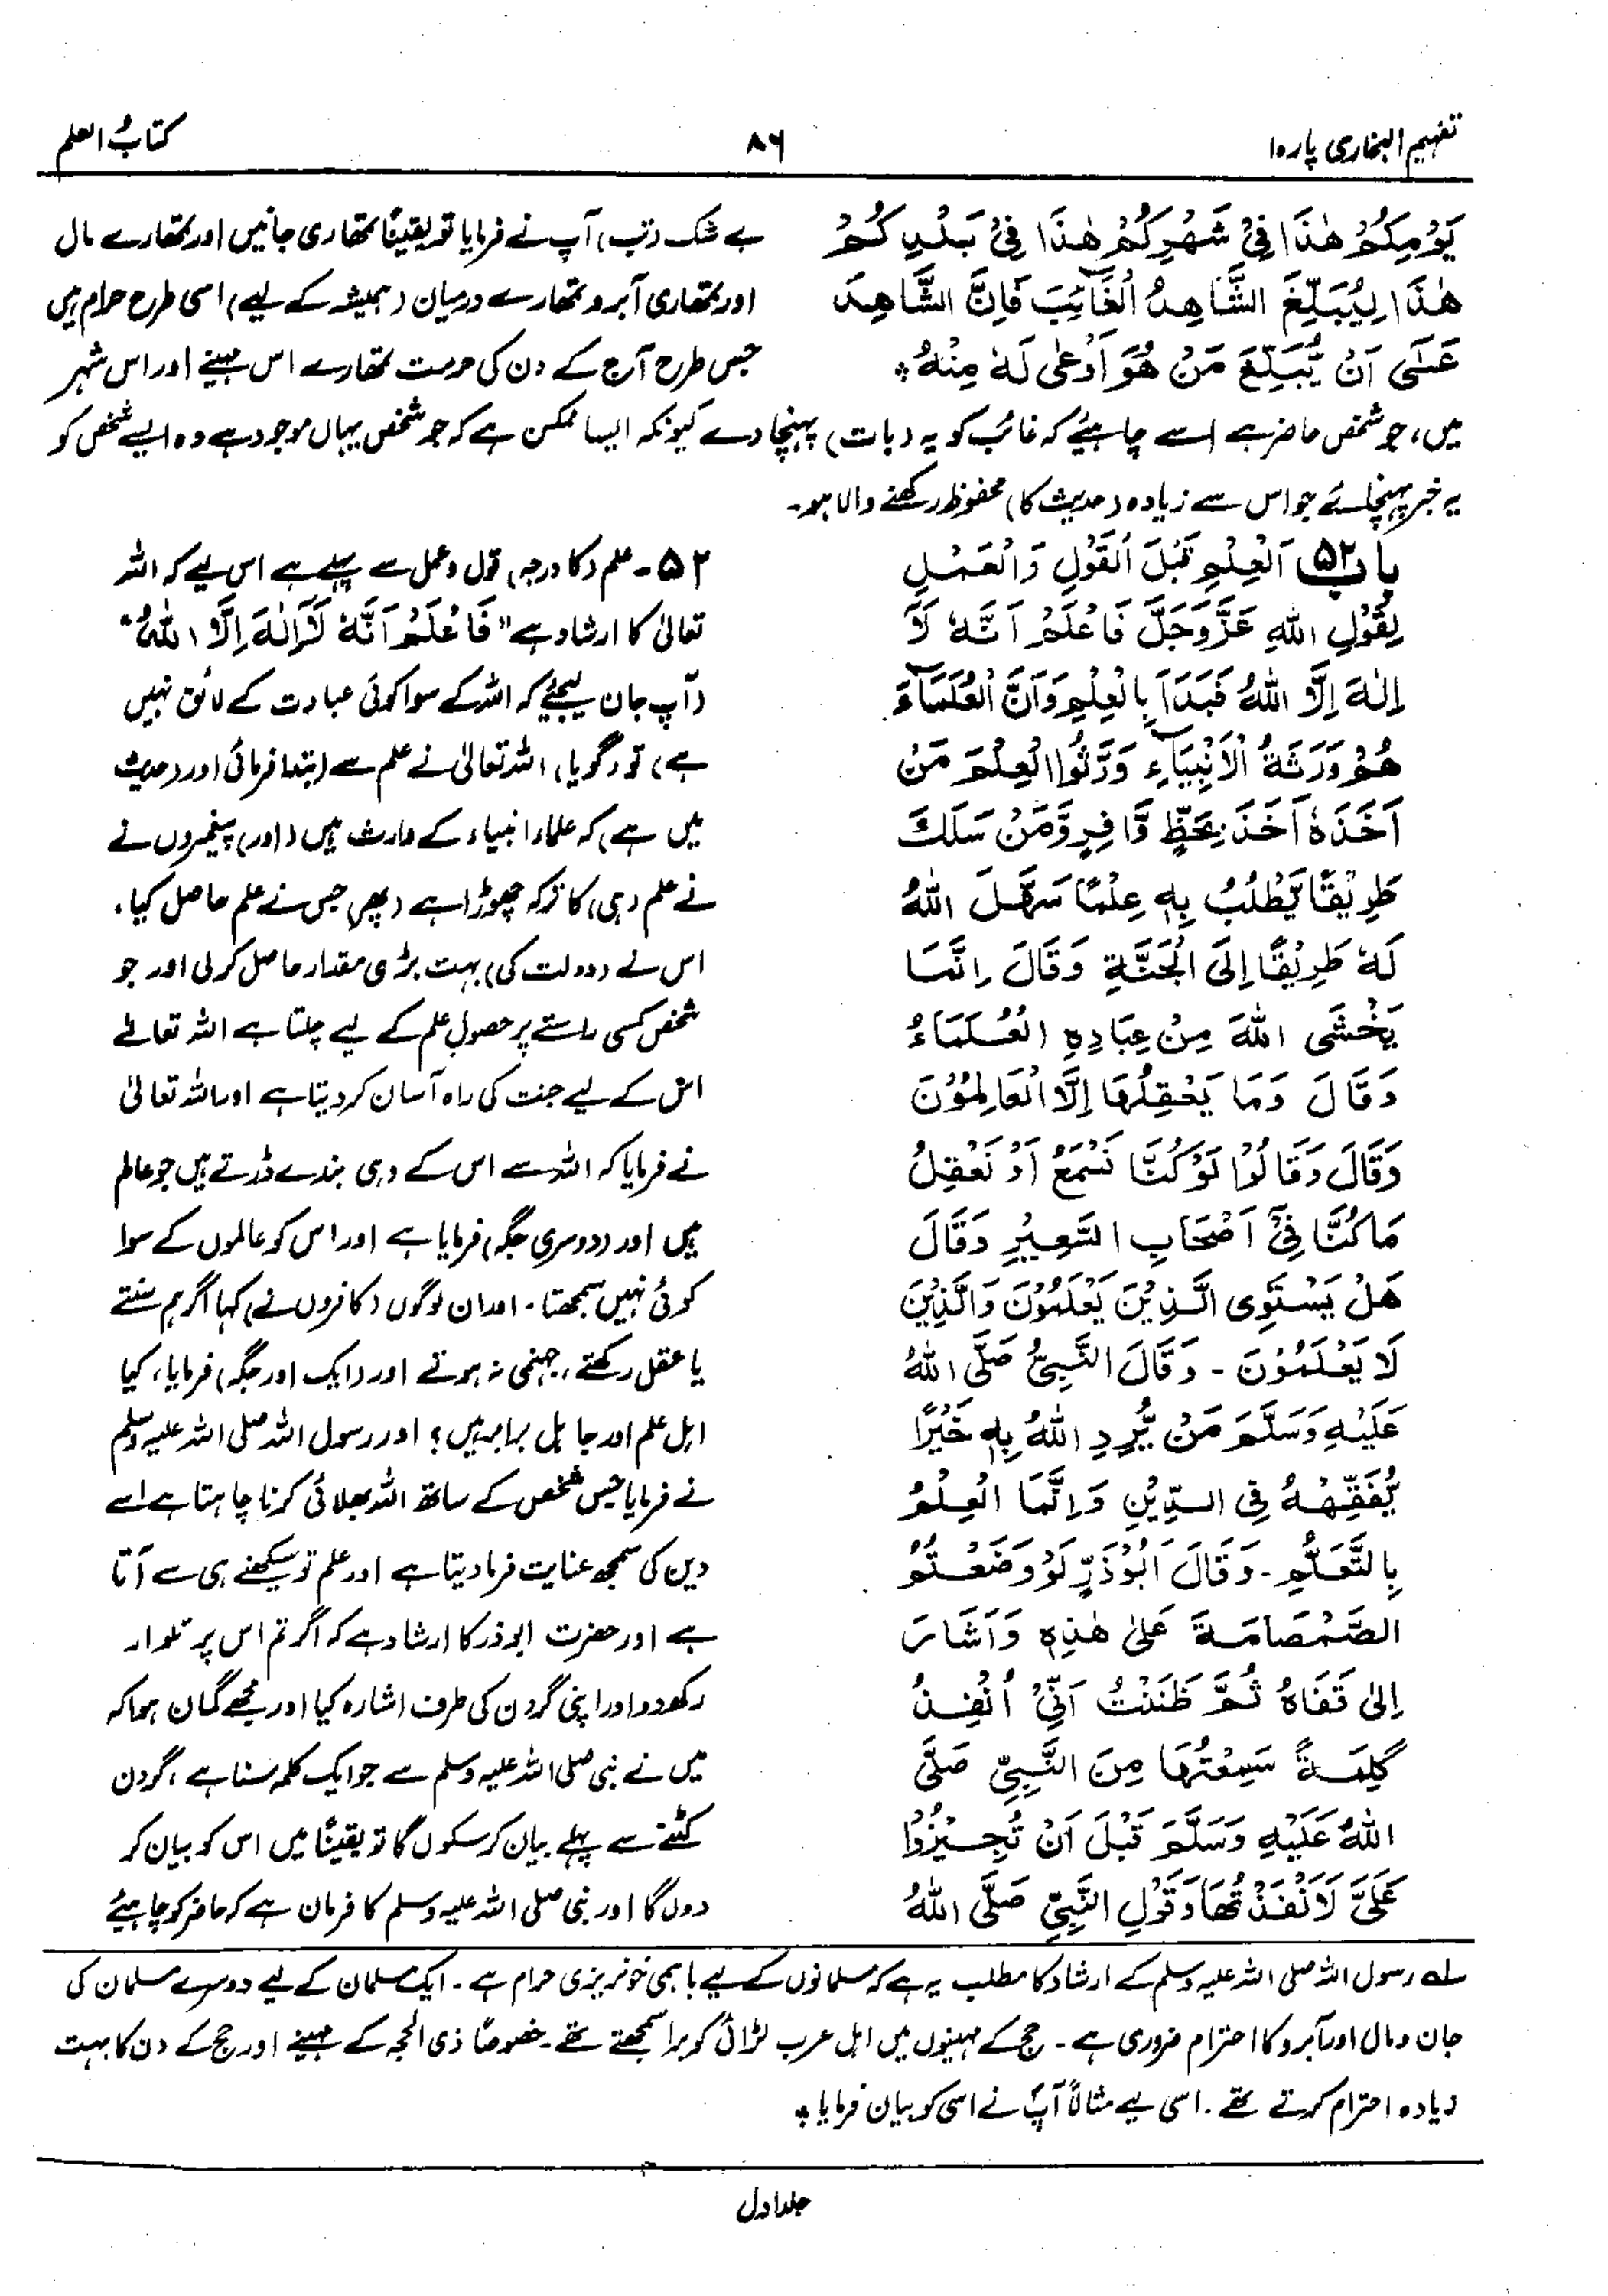 تفہیم البخاری پارہ ۱
۸۶
کتابُ العلم
يَوْمِكُمْ هٰذَا فِيْ شَهْرِكُمْ هٰذَا فِيْ بَلَدِكُمْ
هٰذَا لِيُبَلِّغَ الشَّاهِدُ الْغَائِبَ فَاِنَّ الشَّاهِدَ
عَسٰى اَنْ يُّبَلِّغَ مَنْ هُوَ اَوْعٰى لَهٗ مِنْهُ ؞
بے شک (تب) آپ نے فرمایا تو یقیناً تمھاری جانیں اور تمھارے مال
اور تمھاری آبرو تمھارے درمیان (ہمیشہ کے لیے) اسی طرح حرام ہیں
جس طرح آج کے دن کی حرمت تمھارے اس مہینے اور اس شہر
میں، جو شخص حاضر ہے اسے چاہیئے کہ غائب کو یہ (بات) پہنچا دے کیونکہ ایسا ممکن ہے کہ جو شخص یہاں موجود ہے وہ ایسے شخص کو
یہ خبر پہنچائے جو اس سے زیادہ (حدیث کا) محفوظ رکھنے والا ہو۔
باب ۵۲ اَلْعِلْمِ قَبْلَ الْقَوْلِ وَالْعَمَلِ
لِقَوْلِ اللهِ عَزَّوَجَلَّ فَاعْلَمْ اَنَّهٗ لَآ
اِلٰهَ اِلَّا اللهُ فَبَدَاَ بِالْعِلْمِ وَاَنَّ الْعُلَمَآءَ
هُمْ وَرَثَةُ الْاَنْبِيَآءِ وَرَّثُوا الْعِلْمَ مَنْ
اَخَذَهٗ اَخَذَ بِحَظٍّ وَّافِرٍ وَّمَنْ سَلَكَ
طَرِيْقًا يَّطْلُبُ بِهٖ عِلْمًا سَهَّلَ اللهُ
لَهٗ طَرِيْقًا اِلَى الْجَنَّةِ وَقَالَ اِنَّمَا
يَخْشَى اللهَ مِنْ عِبَادِهِ الْعُلَمَاءُ
وَقَالَ وَمَا يَعْقِلُهَا اِلَّا الْعَالِمُوْنَ
وَقَالَ وَقَالُوْا لَوْ كُنَّا نَسْمَعُ اَوْ نَعْقِلُ
مَا كُنَّا فِيْٓ اَصْحَابِ السَّعِيْرِ وَقَالَ
هَلْ يَسْتَوِى الَّذِيْنَ يَعْلَمُوْنَ وَالَّذِيْنَ
لَا يَعْلَمُوْنَ ۔ وَقَالَ النَّبِيُّ صَلَّى اللهُ
عَلَيْهِ وَسَلَّمَ مَنْ يُّرِدِ اللهُ بِهٖ خَيْرًا
يُّفَقِّهْهُ فِى الدِّيْنِ وَاِنَّمَا الْعِلْمُ
بِالتَّعَلُّمِ ۔ وَقَالَ اَبُوْذَرٍّ لَوْ وَضَعْتُمُ
الصَّمْصَامَةَ عَلٰى هٰذِهٖ وَاَشَارَ
اِلٰى قَفَاهُ ثُمَّ ظَنَنْتُ اَنِّيْٓ اُنْفِذُ
كَلِمَةً سَمِعْتُهَا مِنَ النَّبِيِّ صَلَّى
اللهُ عَلَيْهِ وَسَلَّمَ قَبْلَ اَنْ تُجِيْزُوْا
عَلَيَّ لَاَنْفَذْتُهَا وَقَوْلِ النَّبِيِّ صَلَّى اللهُ
۵۲ ۔ علم (کا درجہ) قول و عمل سے پہلے ہے اس لیے کہ اللہ
تعالیٰ کا ارشاد ہے "فَاعْلَمْ اَنَّهٗ لَآ اِلٰهَ اِلَّا اللهُ"
(آپ جان لیجئے کہ اللہ کے سوا کوئی عبادت کے لائق نہیں
ہے) تو (گویا) اللہ تعالیٰ نے علم سے ابتدا فرمائی اور (حدیث
میں ہے) کہ علماء انبیاء کے وارث ہیں (اور) پیغمبروں نے
نے علم (ہی) کا ترکہ چھوڑا ہے (پھر) جس نے علم حاصل کیا،
اس نے (دولت کی) بہت بڑی مقدار حاصل کر لی اور جو
شخص کسی راستے پر حصولِ علم کے لیے چلتا ہے اللہ تعالےٰ
اس کے لیے جنت کی راہ آسان کر دیتا ہے اور اللہ تعالیٰ
نے فرمایا کہ اللہ سے اس کے وہی بندے ڈرتے ہیں جو عالم
ہیں اور (دوسری جگہ) فرمایا ہے اور اس کو عالموں کے سوا
کوئی نہیں سمجھتا ۔ اور ان لوگوں (کافروں نے) کہا اگر ہم سنتے
یا عقل رکھتے، جہنمی نہ ہوتے اور (ایک اور جگہ) فرمایا، کیا
اہل علم اور جاہل برابر ہیں؟ اور رسول اللہ صلی اللہ علیہ وسلم
نے فرمایا جس شخص کے ساتھ اللہ بھلائی کرنا چاہتا ہے اسے
دین کی سمجھ عنایت فرما دیتا ہے اور علم تو سیکھنے ہی سے آتا
ہے اور حضرت ابوذر کا ارشاد ہے کہ اگر تم اس پر تلوار
رکھ دو اور اپنی گردن کی طرف اشارہ کیا اور مجھے گمان ہو کہ
میں نے نبی صلی اللہ علیہ وسلم سے جو ایک کلمہ سنا ہے، گردن
کٹنے سے پہلے بیان کر سکوں گا تو یقیناً میں اس کو بیان کر
دوں گا اور نبی صلی اللہ علیہ وسلم کا فرمان ہے کہ حاضر کو چاہیئے
لہ رسول اللہ صلی اللہ علیہ وسلم کے ارشاد کا مطلب یہ ہے کہ مسلمانوں کے لیے باہمی خونریزی حرام ہے ۔ ایک مسلمان کے لیے دوسرے مسلمان کی
جان و مال اور آبرو کا احترام ضروری ہے ۔ حج کے مہینوں میں اہل عرب لڑائی کو برا سمجھتے تھے ۔ خصوصًا ذی الحجہ کے مہینے اور حج کے دن کا بہت
زیادہ احترام کرتے تھے ۔ اسی لیے مثالاً آپؐ نے اسی کو بیان فرمایا ؞
جلد اول